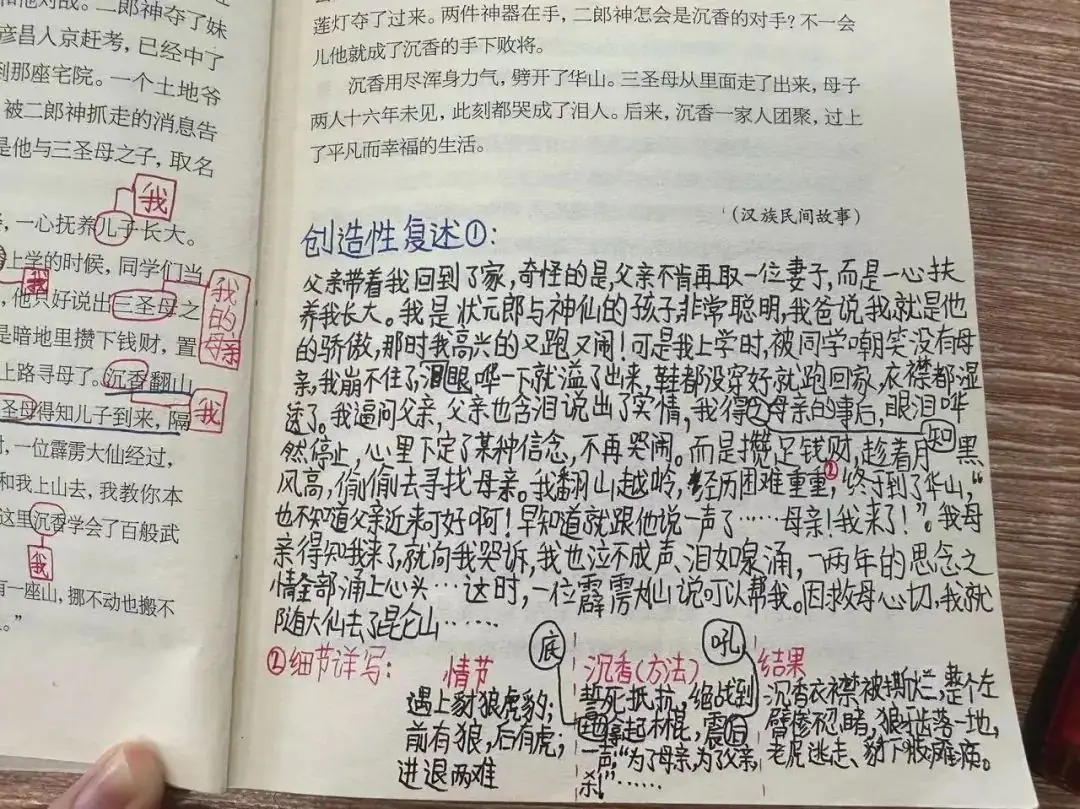 和他对战。二郎神夺了妹
彦昌人京赶考，已经中了
到那座宅院。一个土地爷
被二郎神抓走的消息告
是他与三圣母之子，取名
我
，一心抚养儿子长大。
上学的时候，同学们当
我
我的母亲
，他只好说出三圣母之
是暗地里攒下钱财，置
上路寻母了。沉香翻山
我
圣母得知儿子到来，隔
，一位霹雳大仙经过，
和我上山去，我教你本
这里沉香学会了百般武
我
有一座山，挪不动也搬不
。”
莲灯夺了过来。两件神器在手，二郎神怎会是沉香的对手？不一会
儿他就成了沉香的手下败将。
沉香用尽浑身力气，劈开了华山。三圣母从里面走了出来，母子
两人十六年未见，此刻都哭成了泪人。后来，沉香一家人团聚，过上
了平凡而幸福的生活。
（汉族民间故事）
创造性复述①：
父亲带着我回到了家，奇怪的是，父亲不肯再取一位妻子，而是一心扶
养我长大。我是状元郎与神仙的孩子非常聪明，我爸说我就是他
的骄傲，那时我高兴的又跑又闹！可是我上学时，被同学嘲笑没有母
亲，我崩不住了，泪眼哗一下就溢了出来，鞋都没穿好就跑回家，衣襟都湿
透了。我逼问父亲，父亲也含泪说出了实情，我得知母亲的事后，眼泪哗
然停止，心里下定了某种信念，不再哭闹。而是攒足钱财，趁着月黑
风高，偷偷去寻找母亲。我翻山越岭，经历困难重重②，终于到了华山，“
也不知道父亲近来可好啊！早知道就跟他说一声了……母亲！我来了！”。我母
亲得知我来了，就向我哭诉，我也泣不成声、泪如泉涌，一两年的思念之
情全部涌上心头…这时，一位霹雳大仙说可以帮我。因救母心切，我就
随大仙去了昆仑山……
②细节详写： 情节 沉香（方法） 结果
遇上豺狼虎豹； 誓死抵抗，绝战到底 沉香衣襟被撕烂，整个左
前有狼，后有虎； 拿起木棍，震吼 臂惨不忍睹，狼牙齿落一地，
进退两难 一声：“为了母亲，为了父亲， 老虎逃走、豹下肢瘫痪。
杀！”……